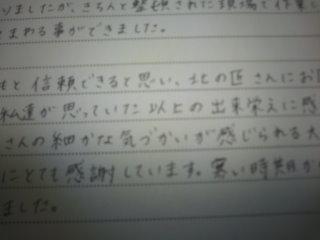 りましたが、きちんと整頓された現場で作業し
とまわる事ができました。
もと信頼できると思い、北の匠さんにお
私達が思っていた以上の出来栄えに感
さんの細かな気づかいが感じられる大
にとても感謝しています。寒い時期が
ました。